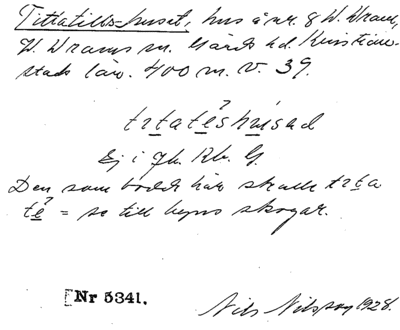 Tittatills-huset, hus å nr. 8 V. Vram,
V. Vrams sn. Gärds hd. Kristian-
stads län. 400 m. v. 39.
tɪtatéshúsad
Ej i Jb. Rb. G.
Den som bodde här skulle tɪta
té = se till byns skogar.
Nr 5341.
Nils Nilsson 1928.